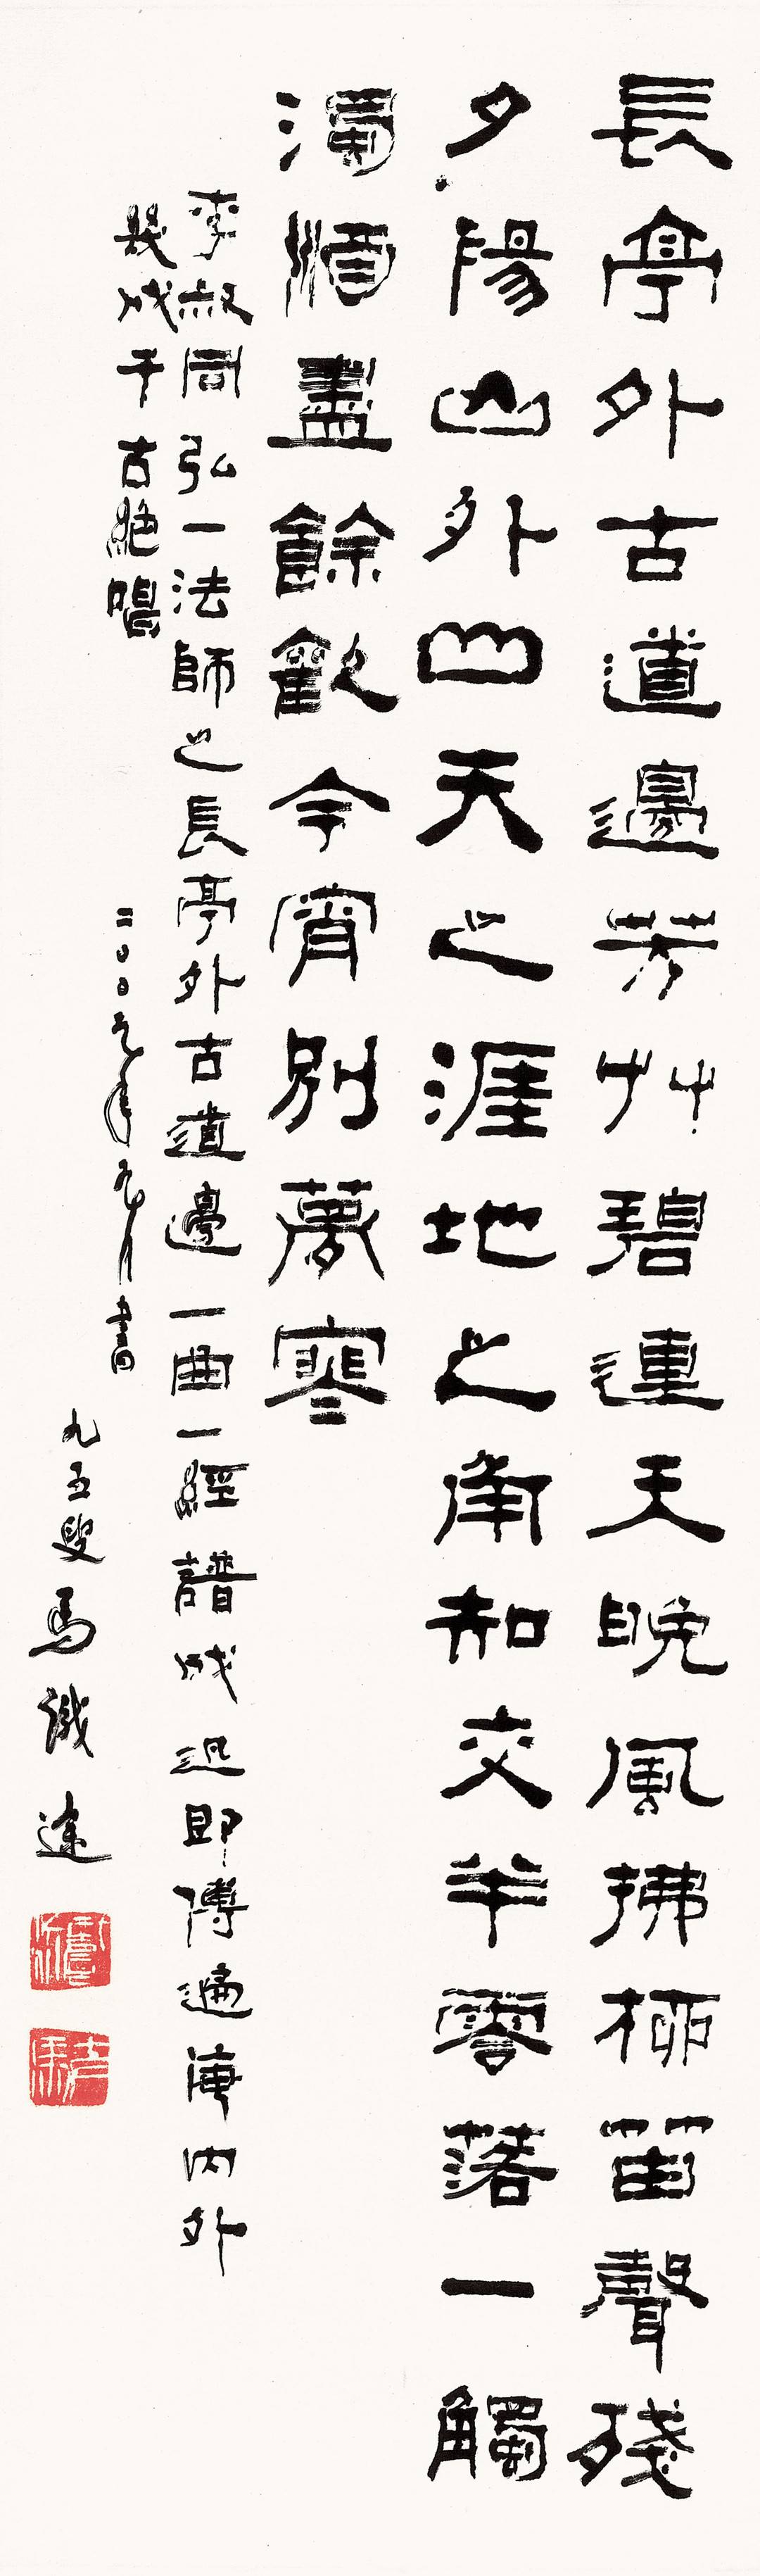 長亭外古道邊芳艸碧連天晚風拂柳笛聲殘
夕陽山外山天之涯地之角知交半零落一觸
濁酒盡餘歡今宵別夢寒
李叔同弘一法師之長亭外古道邊一曲一經譜成迅即傳遍海內外
幾成千古絕唱
二〇〇九年九月書
九五叟馬識途